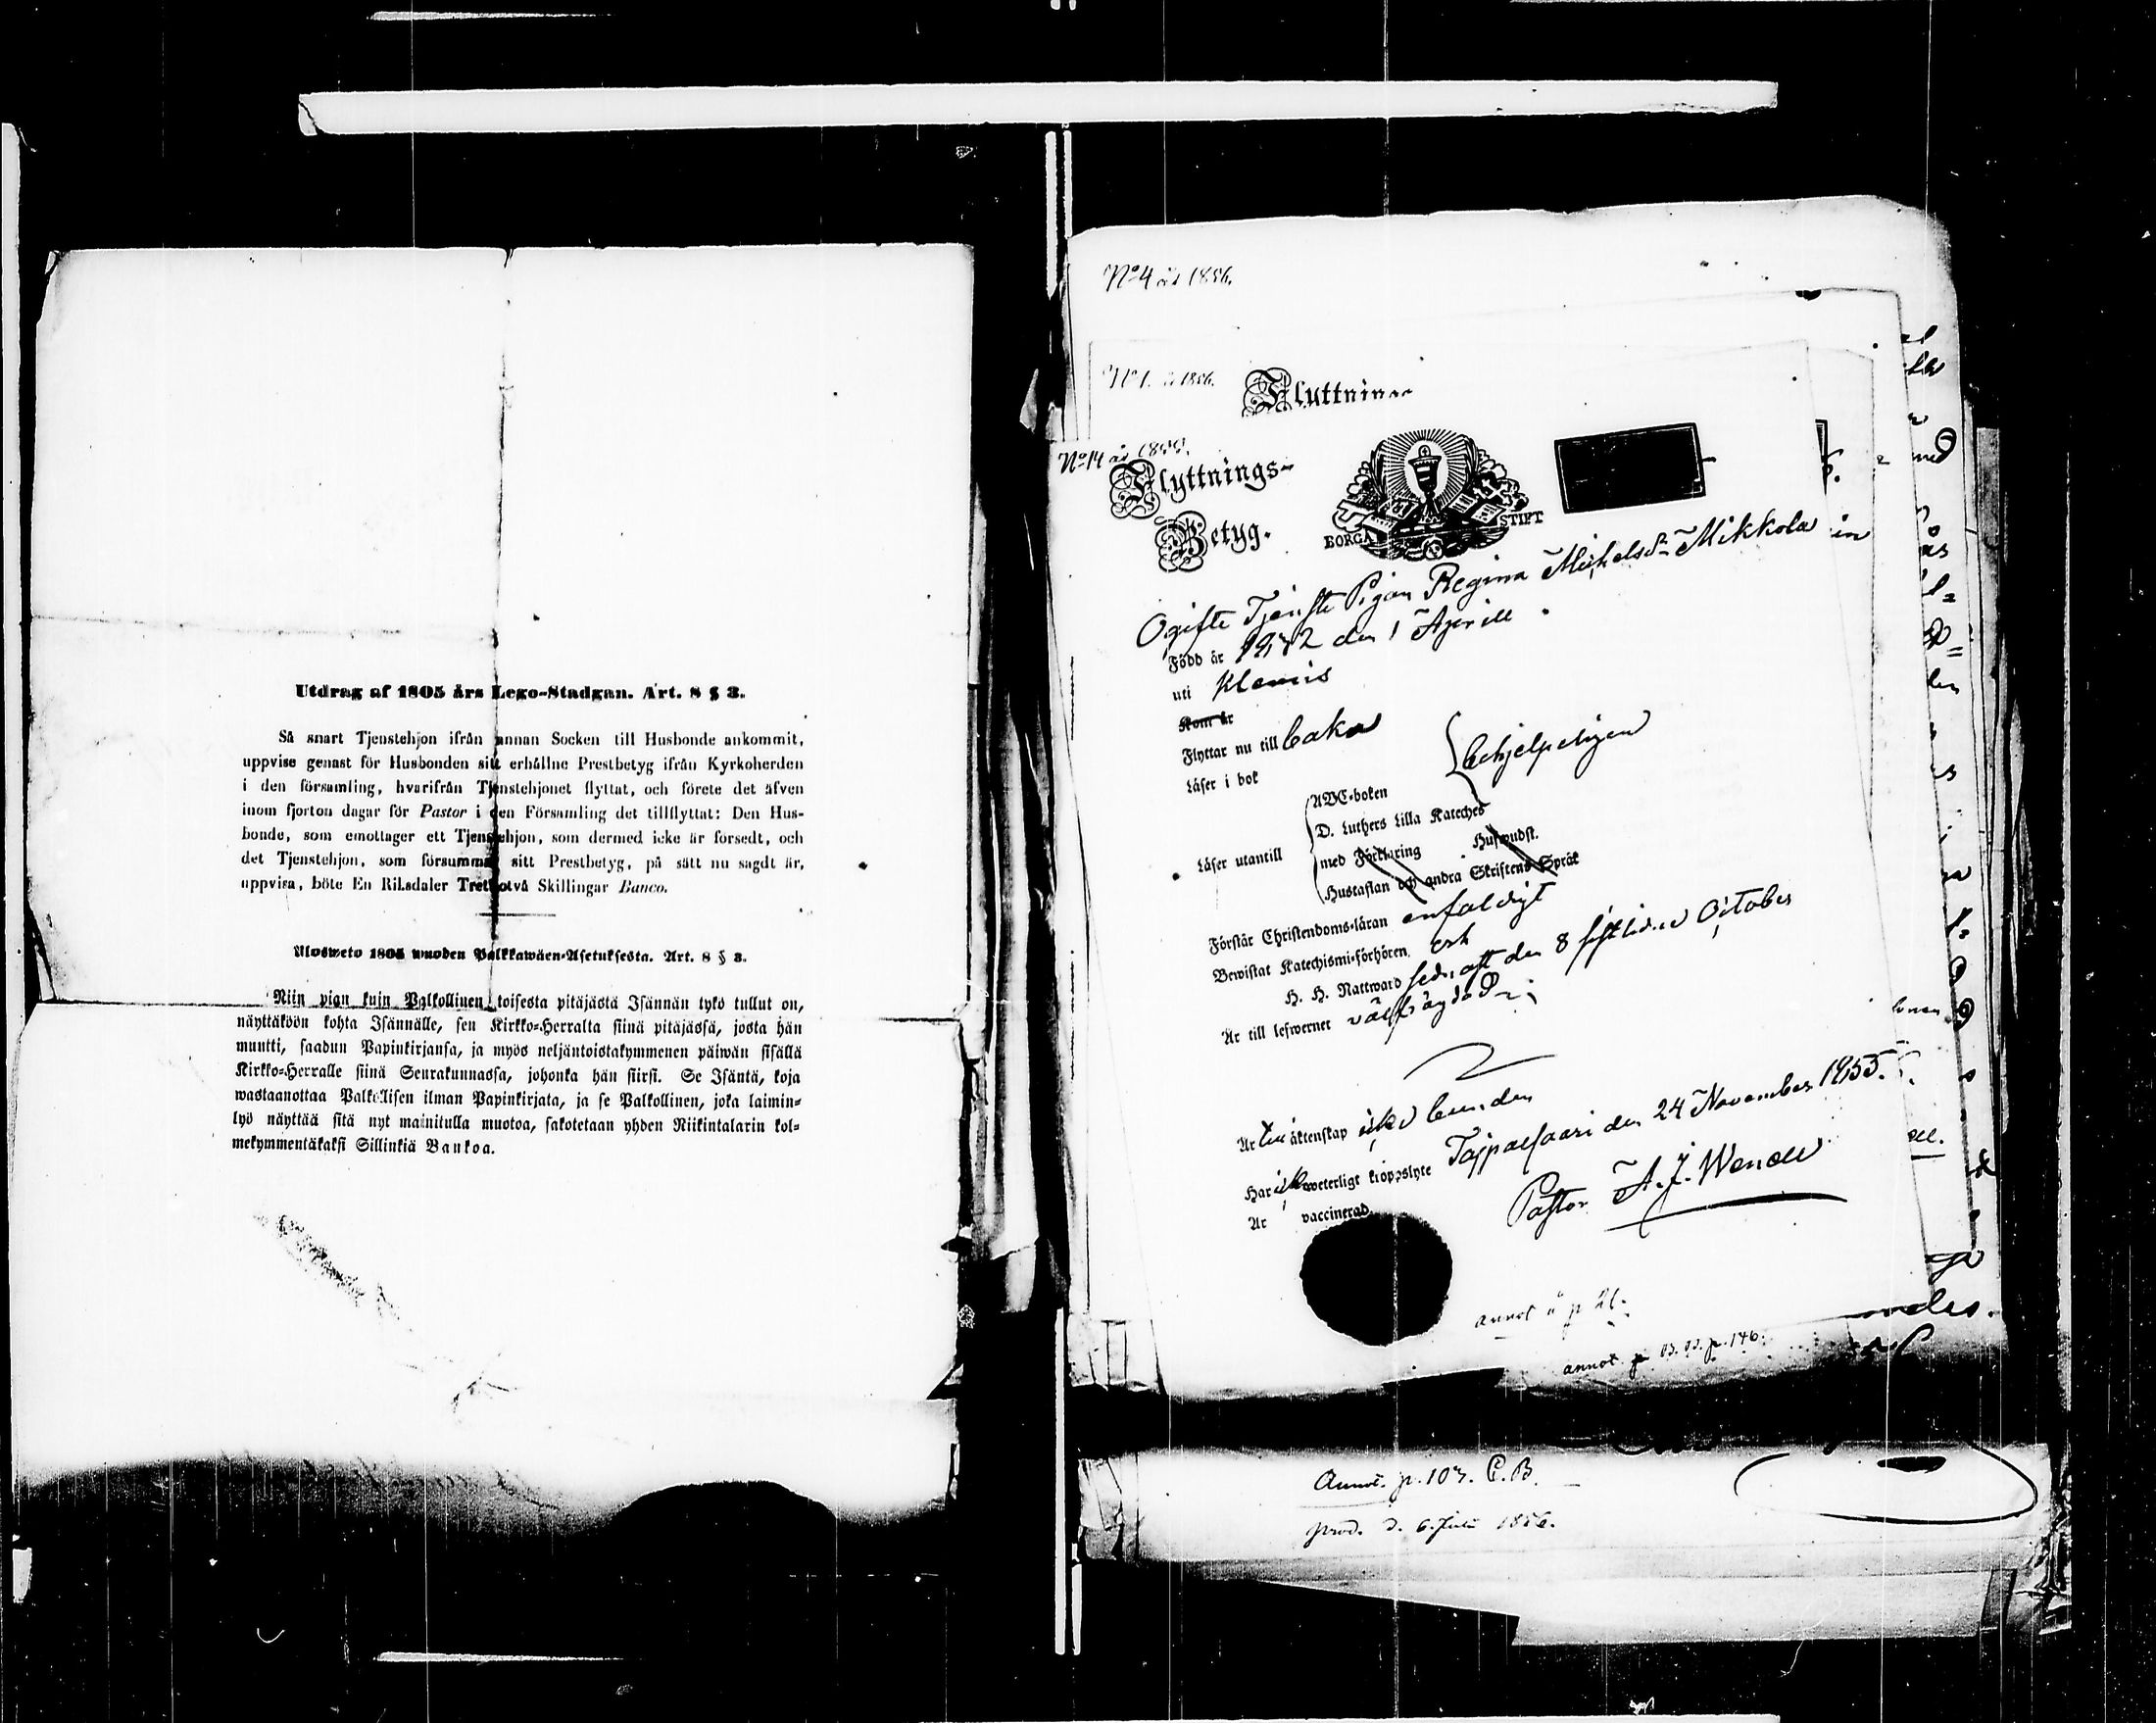 Utdrag af 1805 års Lego-Stadgan. Art. 8 § 3.
Så snart Tjenstehjon ifrån annan Socken till Husbonde ankommit,
uppvise genast för Husbonden sitt erhållne Prestbetyg ifrån Kyrkoherden
i den församling, hvarifrån Tjenstehjonet flyttat, och förete det äfven
inom fjorton dagar för Pastor i den Församling det tillflyttat: Den Hus-
bonde, som emottager ett Tjenstehjon, som dermed icke är försedt, och
det Tjenstehjon, som försummar sitt Prestbetyg, på sätt nu sagdt är,
uppvisa, böte En Riksdaler Trettiotvå Skillingar Banco.
Ulosweto 1805 wuoden Palkkawäen-Asetuksesta. Art. 8 § 3.
Niin pian kuin Palkollinen toisesta pitäjästä Isännän tykö tullut on,
näyttäköön kohta Isännälle, sen Kirkko-Herralta siinä pitäjässä, josta hän
muutti, saadun Papinkirjansa, ja myös neljäntoistakymmenen päiwän sisällä
Kirkko-Herralle siinä Seurakunnassa, johonka hän siirsi. Se Isäntä, koja
wastaanottaa Palkollisen ilman Papinkirjata, ja se Palkollinen, joka laimin-
lyö näyttää sitä nyt mainitulla muotoa, sakotetaan yhden Riikintalarin kol-
mekymmentäkaksi Sillinkiä Bankoa.
No 4 år 1856.
No 1. 1856.
Flyttnings
No 14 år
Flyttnings-
Betyg.
BORGÅ STIFT
Ogifte Tjenste Pigan Regina Michelsdr Mikkola
Född år den 1 April
uti Klemis
Kom år
Flyttar nu till
Läser i bok behjelpeligen
Läser utantill
ABC-boken
D. Luthers Lilla Kateches
med Förklaring Huswudst.
Hustaflan och andra Skriftens Språk
Förstår Christendoms-läran enfaldigt
Bewistat Katechismi-förhören och
H. H. Nattward sednast den 8 sistlidne October
Är till lefwernet välfrägdad
Är till äktenskap icke bunden
Har icke weterligt kroppslyte Taipalsaari den 24 November 1855.
Är vaccinerad Pastor A. J. Wendell
annot p 21.
annot p B.B. p. 146.
Annot. p. 107. C.B.
prod. d. 6 Juli 1856.